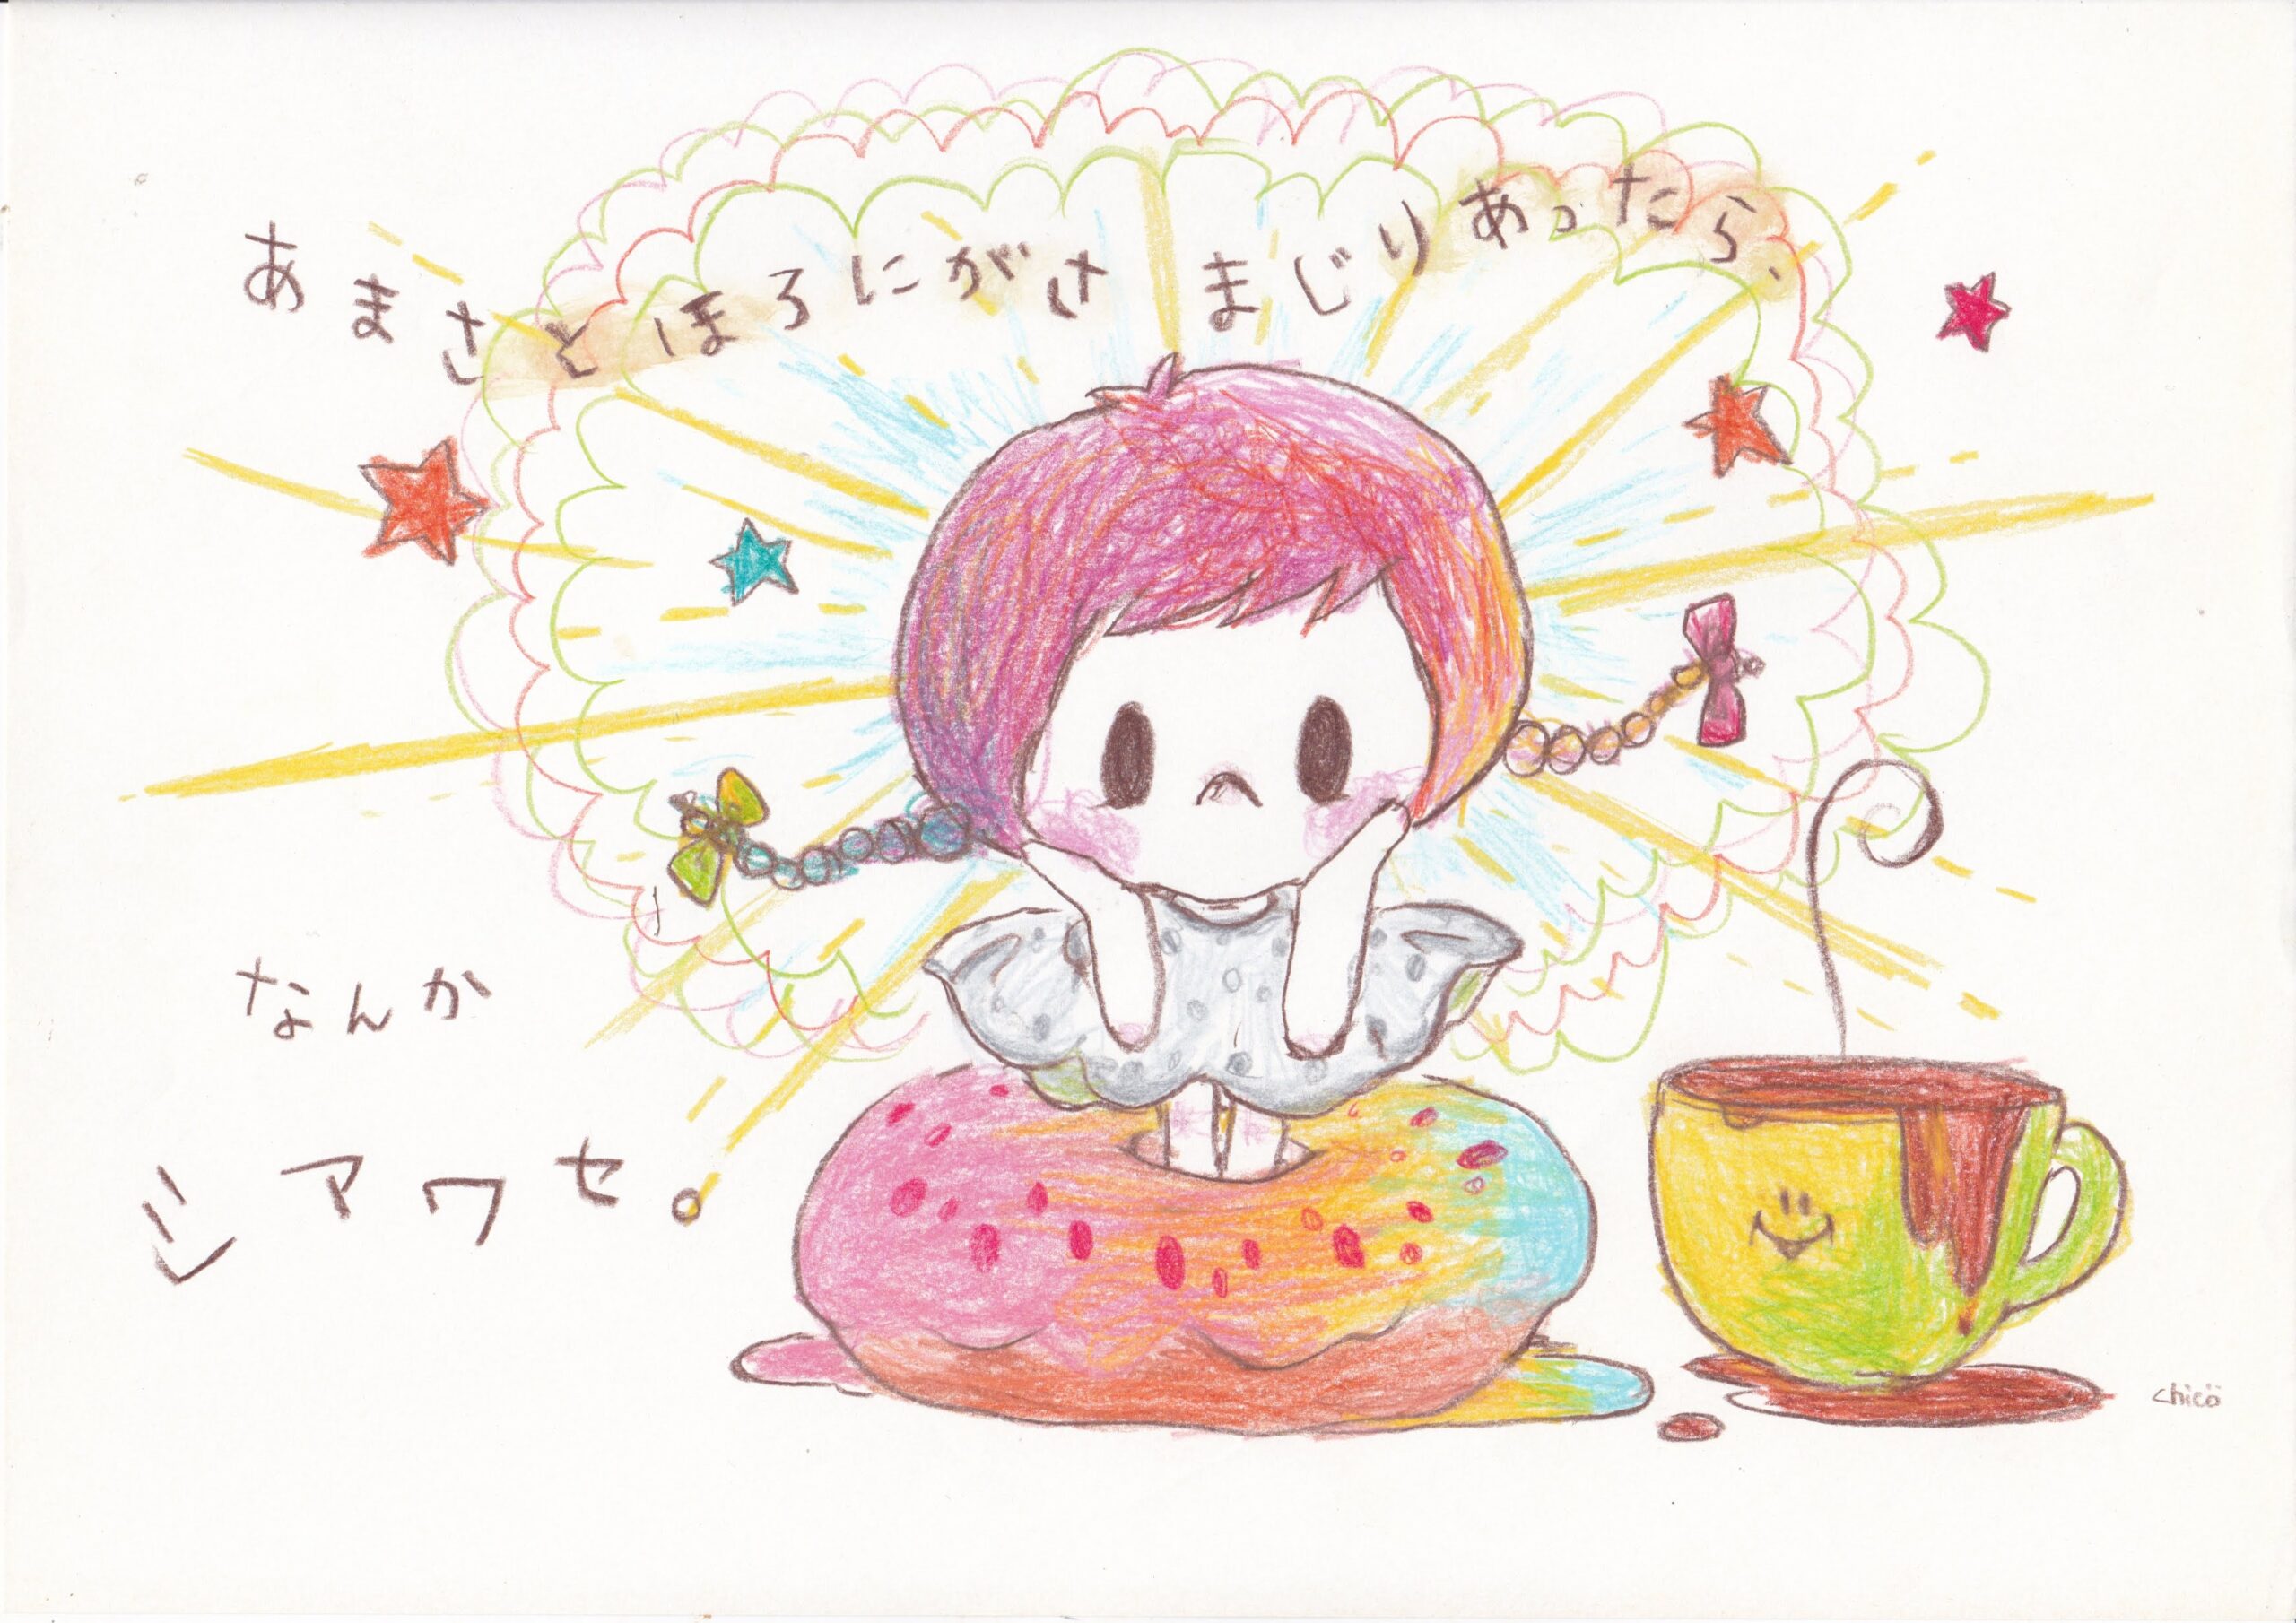 あまさとほろにがさ まじりあったら、
なんか
シアワセ。
chicö